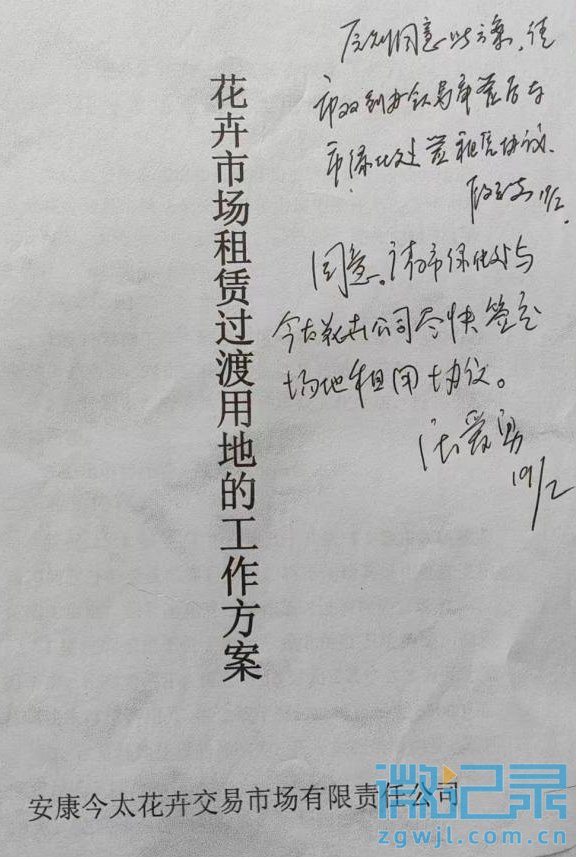 原则同意此方案，经
市双创办领导审签后与
市绿化处签租赁协议.
19/2.
同意。请市绿化处与
今太花卉公司尽快签定
场地租用协议。
19/2
花卉市场租赁过渡用地的工作方案
安康今太花卉交易市场有限责任公司
微记录
zgwjl.com.cn